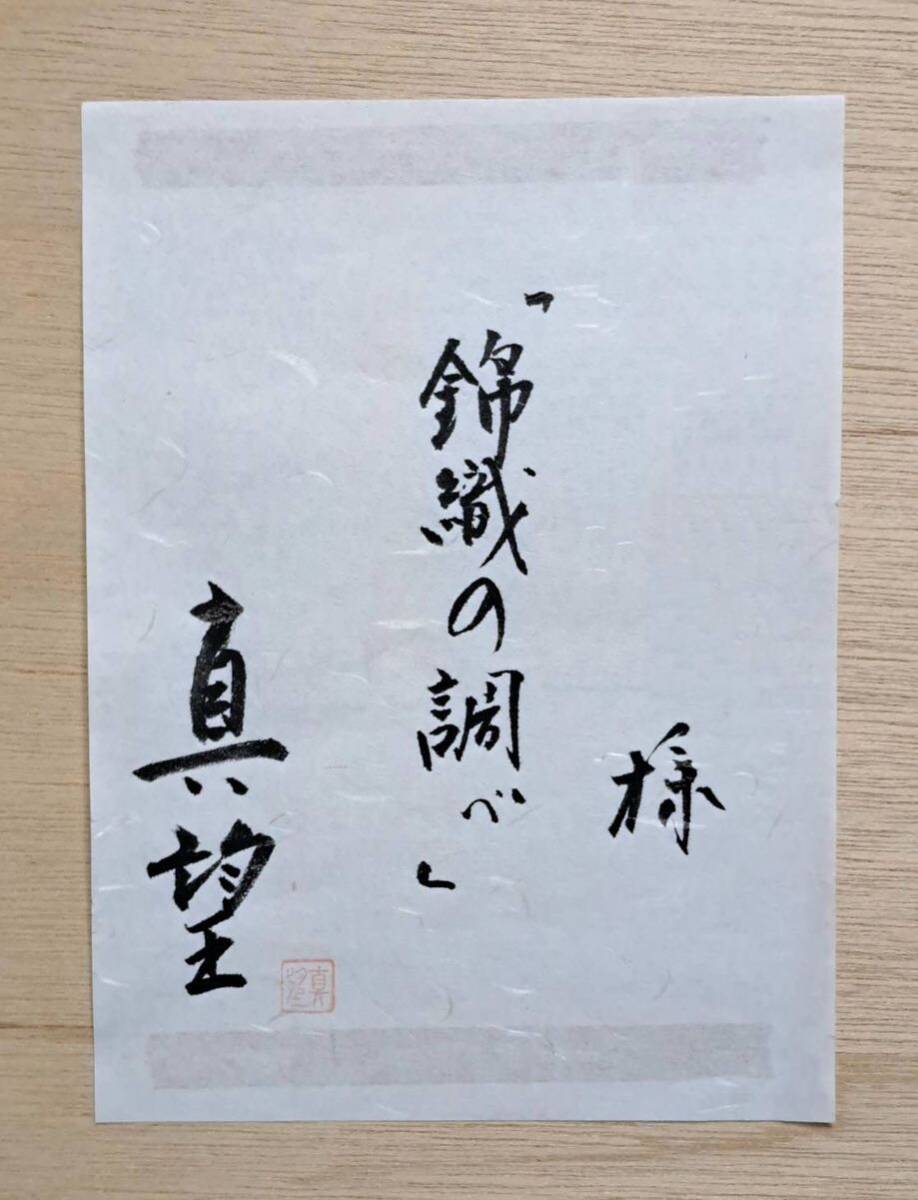 様
「錦織の調べ」
真望
真望